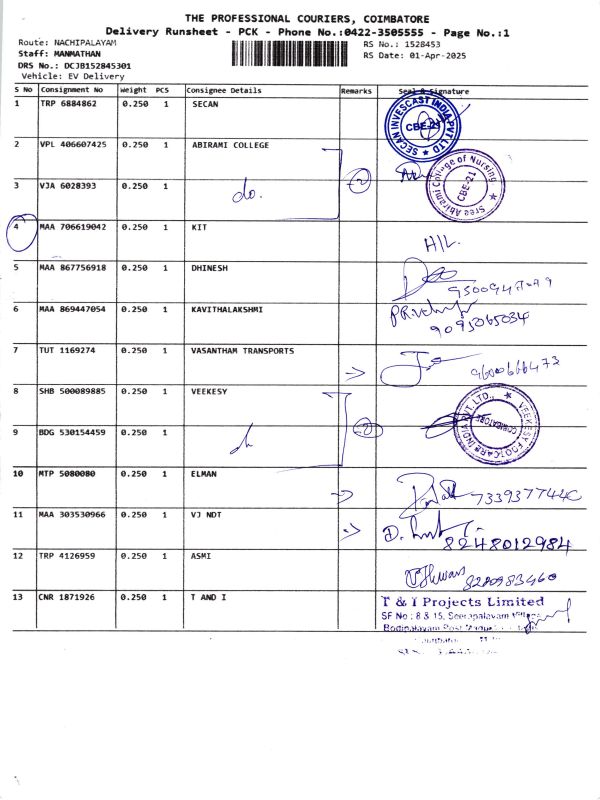 THE PROFESSIONAL COURIERS, COIMBATORE
Delivery Runsheet - PCK - Phone No.:0422-3505555 - Page No.:1
Route: NACHIPALAYAM
RS No.: 1528453
Staff: MANMATHAN
RS Date: 01-Apr-2025
DRS No.: DCJB152845301
Vehicle: EV Delivery
S No Consignment No Weight PCS Consignee Details Remarks Seal & Signature
1 TRP 6884862 0.250 1 SECAN
SECAN INVESCAST INDIA PVT LTD CBE-21
2 VPL 406607425 0.250 1 ABIRAMI COLLEGE
Sree Abirami College of Nursing CBE-21
3 VJA 6028393 0.250 1 do. 2
4 MAA 706619042 0.250 1 KIT H/L.
5 MAA 867756918 0.250 1 DHINESH
6 MAA 869447054 0.250 1 KAVITHALAKSHMI
9095065034
7 TUT 1169274 0.250 1 VASANTHAM TRANSPORTS
9600666473
8 SHB 500089885 0.250 1 VEEKESY
VEEKESY FOOTCARE INDIA PVT. LTD., COIMBATORE
9 BDG 530154459 0.250 1 2
10 MTP 5080080 0.250 1 ELMAN
11 MAA 303530966 0.250 1 VJ NDT
8248012984
12 TRP 4126959 0.250 1 ASMI
8220983460
13 CNR 1871926 0.250 1 T AND I
T & I Projects Limited
SF No : 8 & 15, Seerapalayam Village
Bodipalayam Post